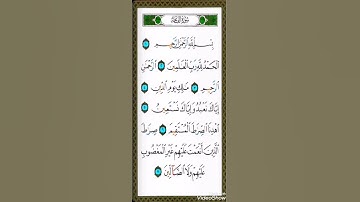 سورة الفاتحة
بِسْمِ ٱللَّهِ ٱلرَّحْمَٰنِ ٱلرَّحِيمِ
ٱلْحَمْدُ لِلَّهِ رَبِّ ٱلْعَٰلَمِينَ ٱلرَّحْمَٰنِ
ٱلرَّحِيمِ مَٰلِكِ يَوْمِ ٱلدِّينِ
إِيَّاكَ نَعْبُدُ وَإِيَّاكَ نَسْتَعِينُ
ٱهْدِنَا ٱلصِّرَٰطَ ٱلْمُسْتَقِيمَ صِرَٰطَ
ٱلَّذِينَ أَنْعَمْتَ عَلَيْهِمْ غَيْرِ ٱلْمَغْضُوبِ
عَلَيْهِمْ وَلَا ٱلضَّآلِّينَ
VideoShow